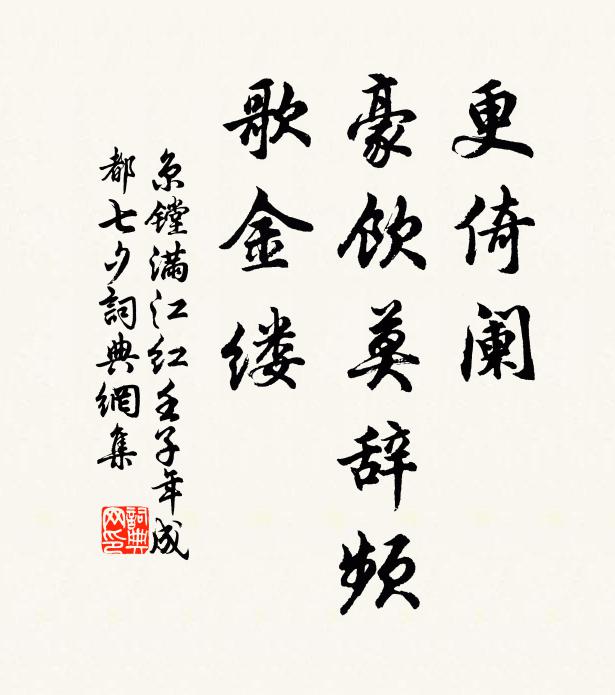 更倚阑
豪饮莫辞频
歌金缕
京镗满江红壬子年成
都七夕詞典網集
詞典
网印